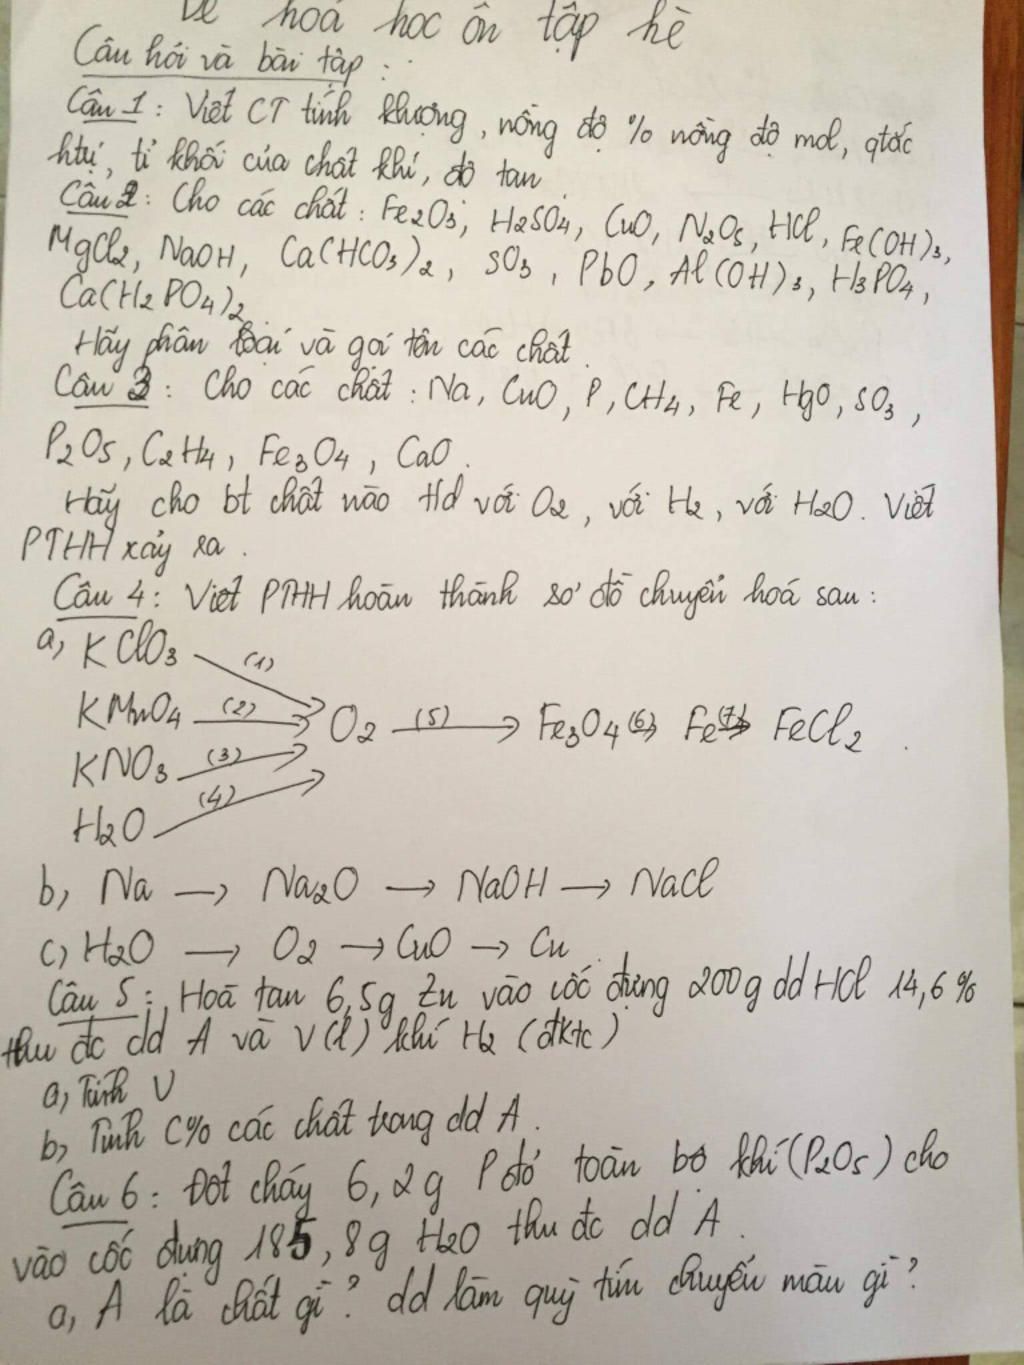 Đề hoá học ôn tập hè
Câu hỏi và bài tập :
Câu 1 : Viết CT tính khượng, nồng độ % nồng độ mol, qtắc
htrị, tỉ khối của chất khí, độ tan
Câu 2 : Cho các chất : Fe₂O₃, H₂SO₄, CuO, N₂O₅, HCl, Fe(OH)₃,
MgCl₂, NaOH, Ca(HCO₃)₂, SO₃, PbO, Al(OH)₃, H₃PO₄,
Ca(H₂PO₄)₂
Hãy phân loại và gọi tên các chất.
Câu 3 : Cho các chất : Na, CuO, P, CH₄, Fe, HgO, SO₃,
P₂O₅, C₂H₄, Fe₃O₄, CaO.
Hãy cho bt chất nào tđ với O₂, với H₂, với H₂O. Viết
PTHH xảy ra.
Câu 4 : Viết PTHH hoàn thành sơ đồ chuyển hoá sau :
a, KClO₃ (1)
KMnO₄ (2) → O₂ (5) → Fe₃O₄ (6) → Fe (7) → FeCl₂
KNO₃ (3)
H₂O (4)
b, Na → Na₂O → NaOH → NaCl
c, H₂O → O₂ → CuO → Cu
Câu 5 : Hoà tan 6,5g Zn vào cốc đựng 200g dd HCl 14,6%
thu đc dd A và V(l) khí H₂ (đktc)
a, Tính V
b, Tính C% các chất trong dd A.
Câu 6 : Đốt cháy 6,2g P đỏ toàn bộ khí (P₂O₅) cho
vào cốc đựng 185,8g H₂O thu đc dd A.
a, A là chất gì ? dd làm quỳ tím chuyển màu gì ?